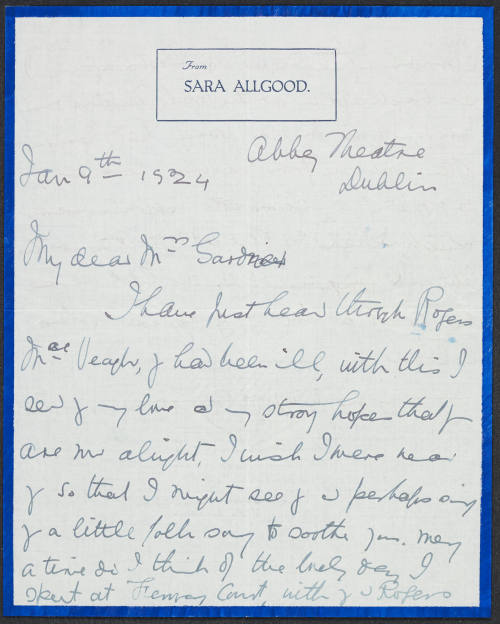 From
SARA ALLGOOD.
Abbey Theatre
Dublin
Jan 9th — 1924
My dear Mrs Gardner
I have just hear through Rogers
Mac Veagh, y had been ill, with this I
send y my love & my strong hope that y
are now alright, I wish I were near
y so that I might see y & perhaps sing
y a little folk song to soothe you. Many
a time do I think of the lovely day I
spent at Fenway Court, with y & Rogers